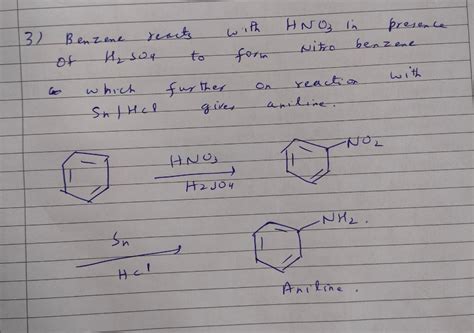 3) Benzene reacts with HNO3 in presence
of H2SO4 to form Nitro benzene
which further on reaction with
Sn/HCl gives aniline.
HNO3
H2SO4
NO2
Sn
HCl
NH2.
Aniline.